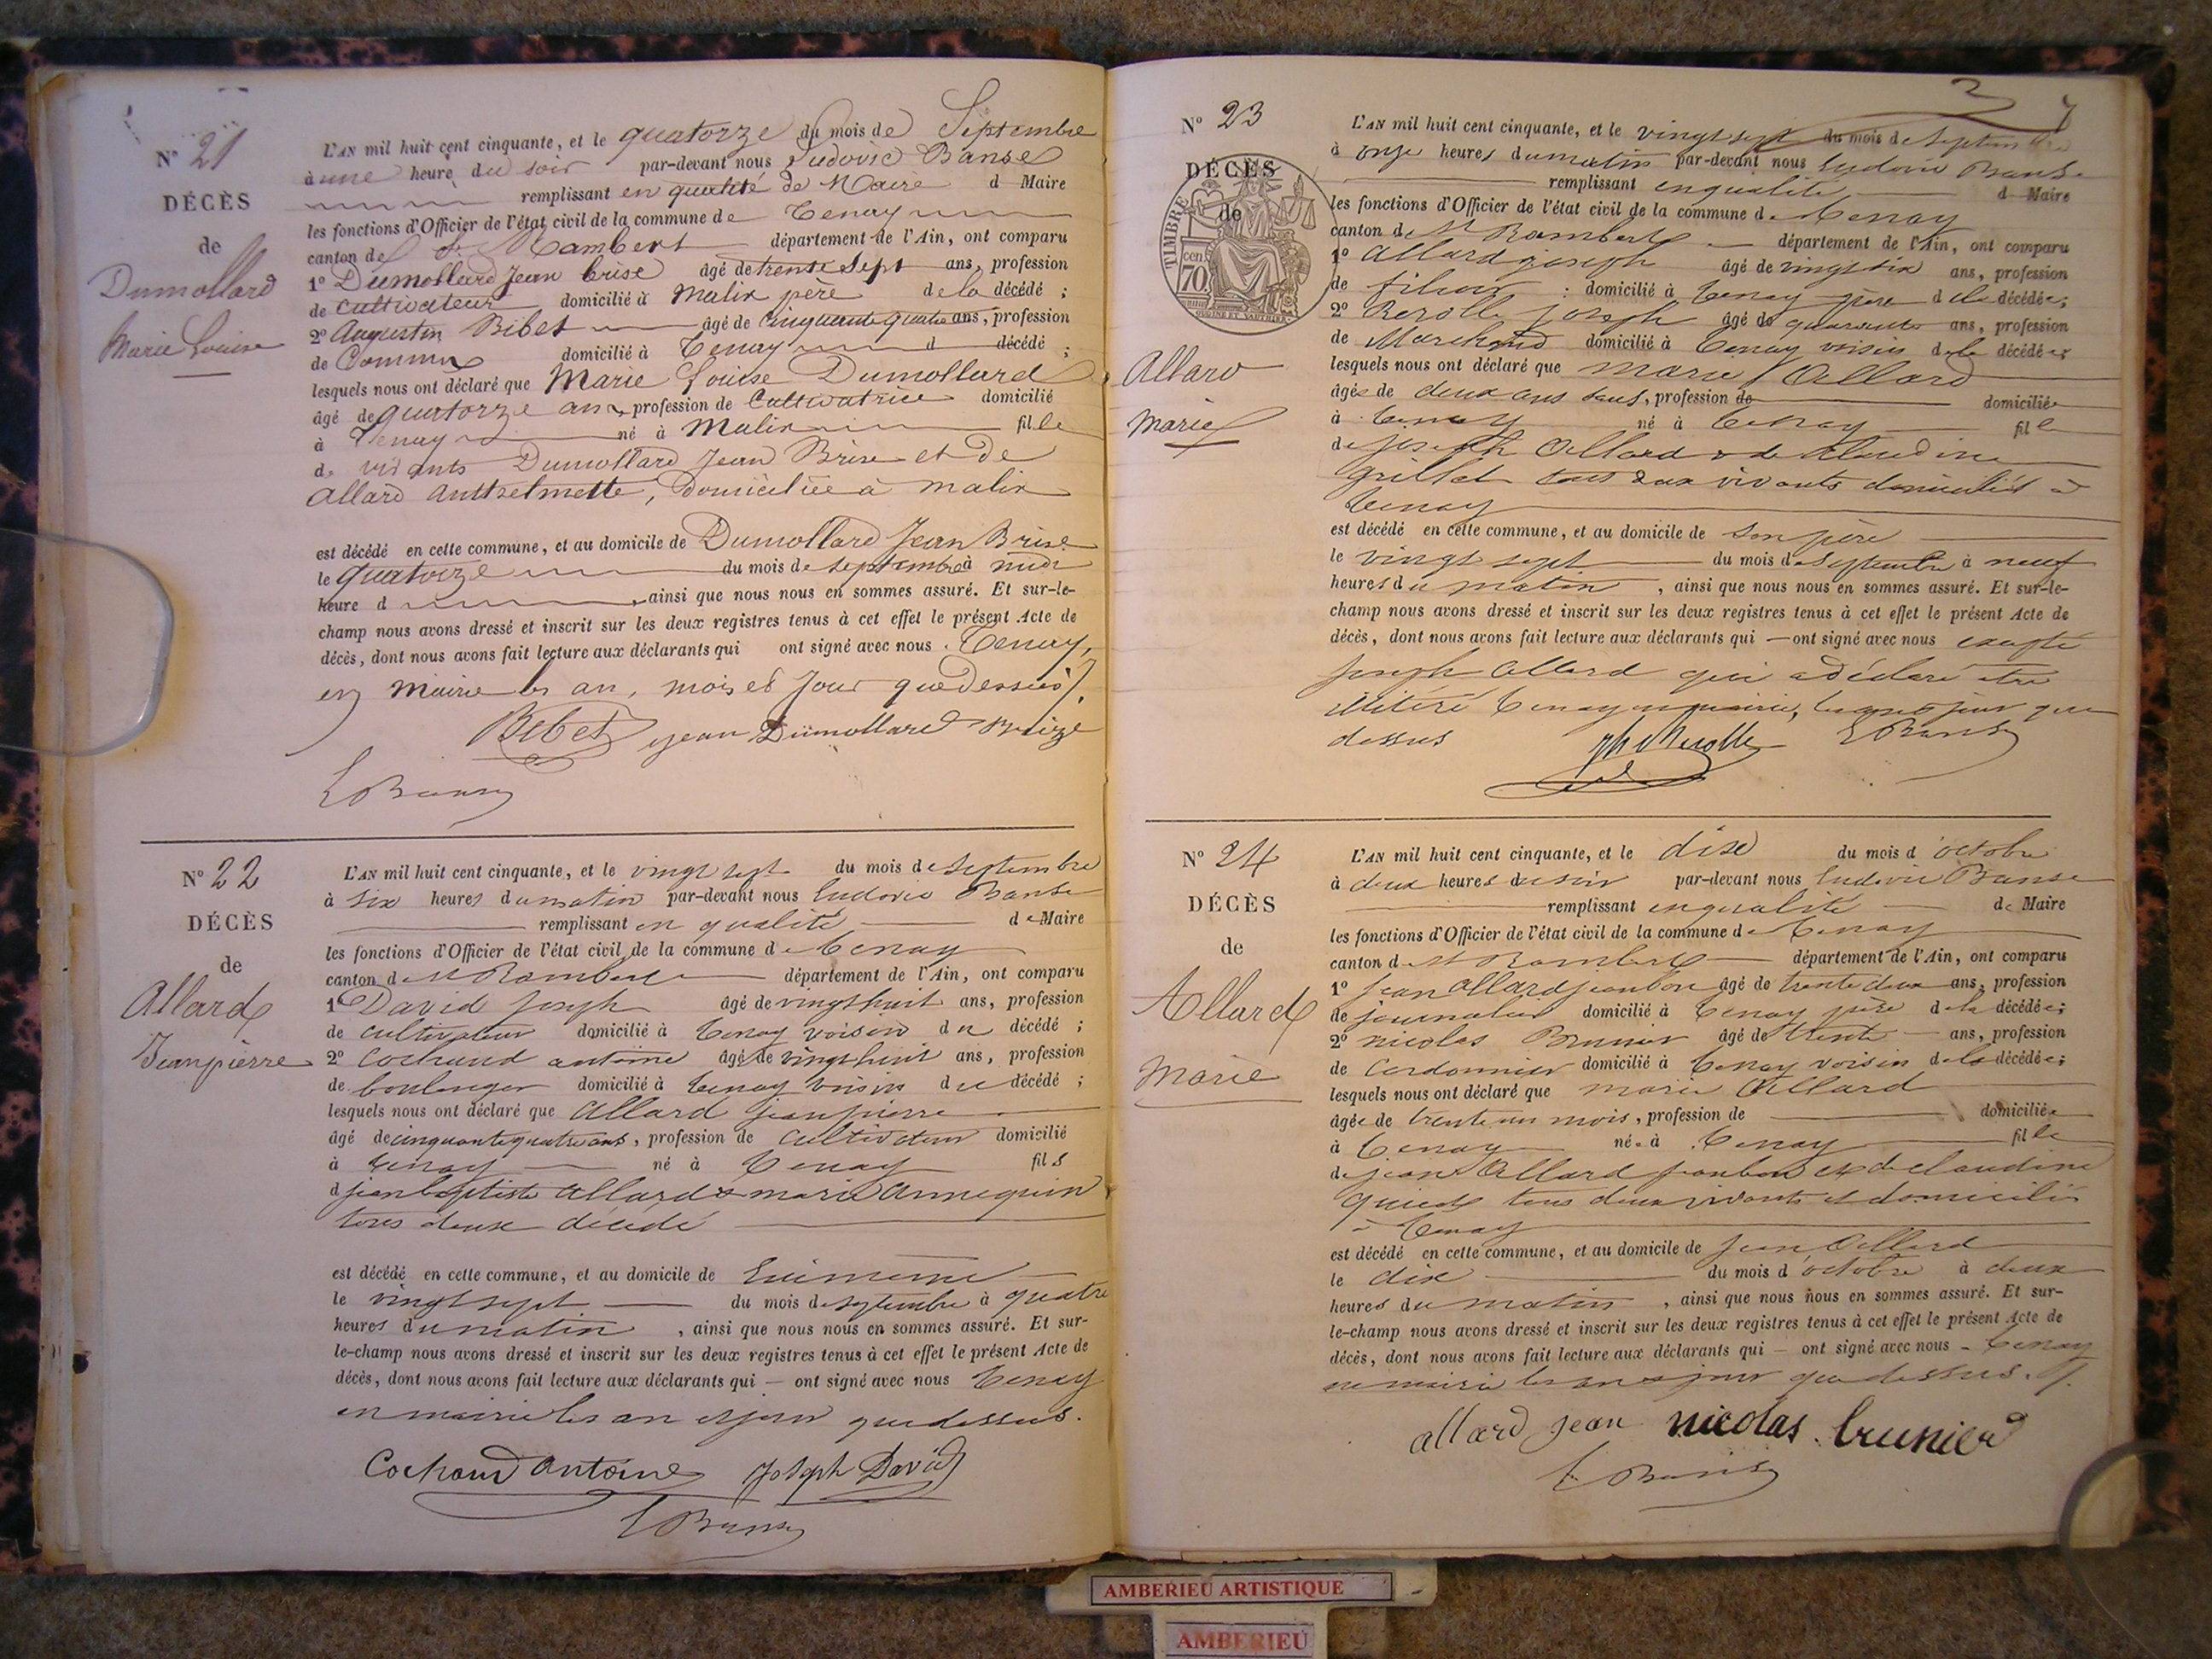 N° 21
DÉCÈS
de
Dumollard
Marie Louise
L'AN mil huit cent cinquante, et le quatorze du mois de Septembre
à une heure du soir par-devant nous Ludovic Banse
remplissant en qualité de Maire d Maire
les fonctions d'Officier de l'état civil de la commune de Tenay
canton de St Rambert département de l'Ain, ont comparu
1° Dumollard Jean Brise âgé de trente Sept ans, profession
de Cultivateur domicilié à Malix père de la décédé ;
2° Augustin Bibet âgé de Cinquante quatre ans, profession
de domicilié à Tenay d décédé ;
lesquels nous ont déclaré que Marie Louise Dumollard
âgé de quatorze ans, profession de Cultivatrice domicilié
à Tenay né à Malix fille
de vivants Dumollard Jean Brise et de
Allard Anthelmette, Domiciliée à Malix
est décédé en cette commune, et au domicile de Dumollard Jean Brise
le quatorze du mois de Septembre à midi
heure d , ainsi que nous nous en sommes assuré. Et sur-le-
champ nous avons dressé et inscrit sur les deux registres tenus à cet effet le présent Acte de
décès, dont nous avons fait lecture aux déclarants qui ont signé avec nous. Tenay,
en Mairie les an, mois et Jour que dessus.
Bibet Jean Dumollard Brize
L Banse
N° 22
DÉCÈS
de
Allard
Jean pierre
L'AN mil huit cent cinquante, et le vingt sept du mois de Septembre
à six heures du matin par-devant nous Ludovic Banse
remplissant en qualité de Maire
les fonctions d'Officier de l'état civil de la commune de Tenay
canton de St Rambert département de l'Ain, ont comparu
1° David Joseph âgé de vingt huit ans, profession
de cultivateur domicilié à Tenay voisin du décédé ;
2° Cochand antoine âgé de vingt huit ans, profession
de boulanger domicilié à Tenay voisin du décédé ;
lesquels nous ont déclaré que Allard jean pierre
âgé de cinquante quatre ans, profession de Cultivateur domicilié
à Tenay né à Tenay fils
d jean baptiste Allard & marie Annequin
tous deux décédé
est décédé en cette commune, et au domicile de Lui meme
le vingt sept du mois de septembre à quatre
heures du matin , ainsi que nous nous en sommes assuré. Et sur-
le-champ nous avons dressé et inscrit sur les deux registres tenus à cet effet le présent Acte de
décès, dont nous avons fait lecture aux déclarants qui — ont signé avec nous Tenay
en mairie les an et jour que dessus.
Cochand Antoine Joseph David
L Banse
3
N° 23
DÉCÈS
de
TIMBRE
cen 70.
Allard
Marie
L'AN mil huit cent cinquante, et le vingt sept du mois de Septembre
à onze heures du matin par-devant nous Ludovic Banse
remplissant en qualité d Maire
les fonctions d'Officier de l'état civil de la commune de Tenay
canton de St Rambert département de l'Ain, ont comparu
1° Allard joseph âgé de vingt six ans, profession
de fileur : domicilié à Tenay père de la décédée ;
2° Rerolle joseph âgé de quarante ans, profession
de Marchand domicilié à Tenay voisin de la décédée ;
lesquels nous ont déclaré que marie Allard
âgée de deux ans , profession de domiciliée
à Tenay né à Tenay fille
de joseph Allard & de Claudine
Grillet tous deux vivants domiciliés à
Tenay
est décédé en cette commune, et au domicile de son père
le vingt sept du mois de Septembre à neuf
heures du matin , ainsi que nous nous en sommes assuré. Et sur-le-
champ nous avons dressé et inscrit sur les deux registres tenus à cet effet le présent Acte de
décès, dont nous avons fait lecture aux déclarants qui — ont signé avec nous excepté
joseph Allard qui a déclaré être
illitéré Tenay en mairie, les an et jour que
dessus jph Rerolle L Banse
N° 24
DÉCÈS
de
Allard
Marie
L'AN mil huit cent cinquante, et le dix du mois d'octobre
à deux heures du soir par-devant nous Ludovic Banse
remplissant en qualité de Maire
les fonctions d'Officier de l'état civil de la commune de Tenay
canton d St Rambert département de l'Ain, ont comparu
1° Jean Allard jeanbon âgé de trente deux ans, profession
de journalier domicilié à Tenay père de la décédée ;
2° nicolas Brunier âgé de trente ans, profession
de Cordonnier domicilié à Tenay voisin de la décédée ;
lesquels nous ont déclaré que marie Allard
âgée de trente un mois, profession de domiciliée
à Tenay née à Tenay fille
de jean Allard jeanbon et de claudine
tous deux vivants et domiciliés
à Tenay
est décédé en cette commune, et au domicile de Jean Allard
le dix du mois d'octobre à deux
heures du matin , ainsi que nous nous en sommes assuré. Et sur-
le-champ nous avons dressé et inscrit sur les deux registres tenus à cet effet le présent Acte de
décès, dont nous avons fait lecture aux déclarants qui — ont signé avec nous – Tenay
en mairie les an & jour que dessus.
allard jean nicolas brunier
L Banse
AMBERIEU ARTISTIQUE
AMBERIEU